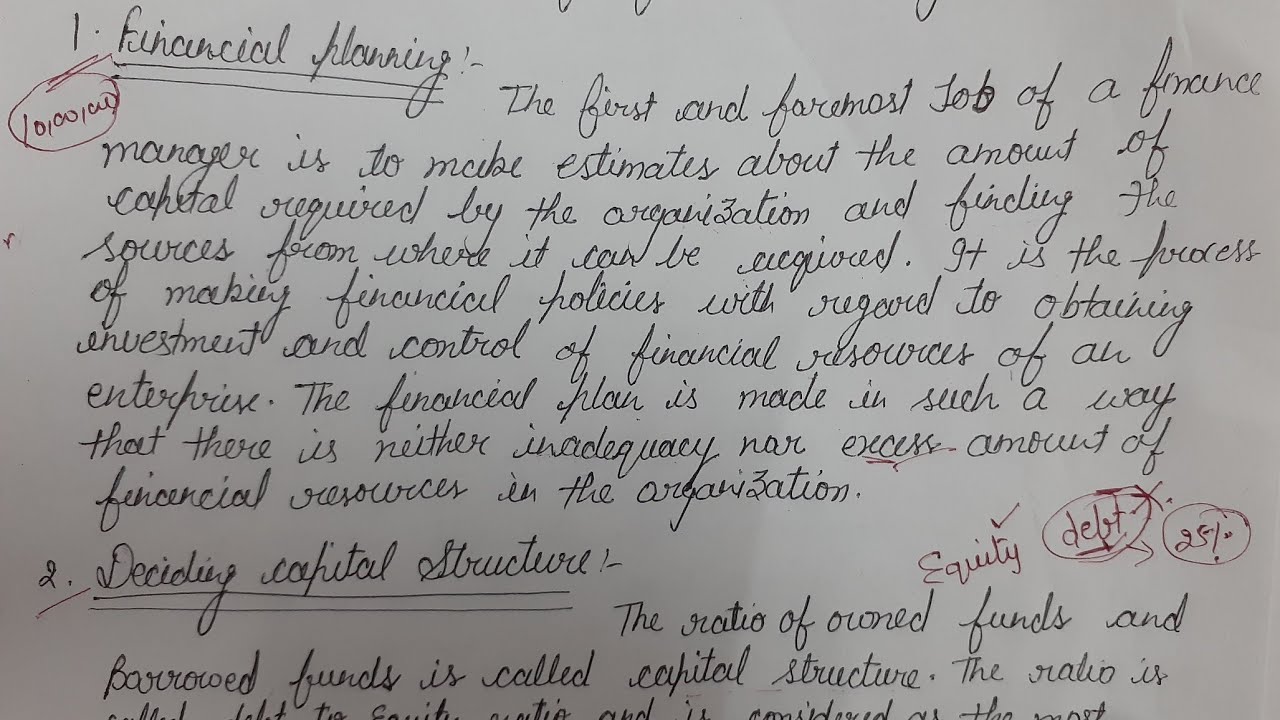 1. Financial planning:-
10,00,000
The first and foremost Job of a finance
manager is to make estimates about the amount of
capital required by the organization and finding the
sources from where it can be acquired. It is the process
of making financial policies with regard to obtaining
investment and control of financial resources of an
enterprise. The financial plan is made in such a way
that there is neither inadequacy nor excess amount of
financial resources in the organization.
Equity debt 25%
2. Deciding capital Structure:-
The ratio of owned funds and
Barrowed funds is called capital structure. The ratio is
called debt to Equity ratio and is considered as the most